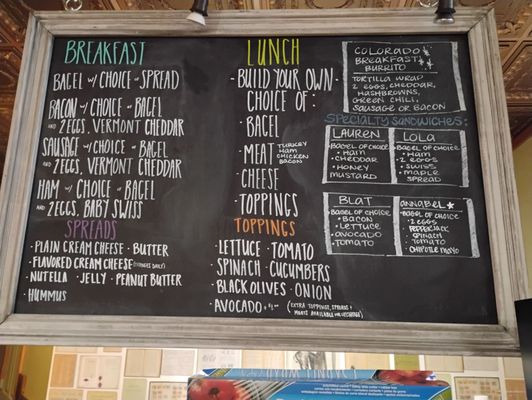 BREAKFAST
BAGEL w/ CHOICE of SPREAD
BACON w/ CHOICE of BAGEL
AND 2 EGGS, VERMONT CHEDDAR
SAUSAGE w/ CHOICE of BAGEL
AND 2 EGGS, VERMONT CHEDDAR
HAM w/ CHOICE of BAGEL
AND 2 EGGS, BABY SWISS
SPREADS
· PLAIN CREAM CHEESE · BUTTER
· FLAVORED CREAM CHEESE (CHANGES DAILY)
· NUTELLA · JELLY · PEANUT BUTTER
· HUMMUS
LUNCH
· BUILD YOUR OWN
CHOICE OF :
· BAGEL
· MEAT TURKEY
HAM
CHICKEN
BACON
· CHEESE
· TOPPINGS
TOPPINGS
· LETTUCE · TOMATO
· SPINACH · CUCUMBERS
· BLACK OLIVES · ONION
· AVOCADO (EXTRA TOPPINGS, SPREADS +
MEATS AVAILABLE w/ UPCHARGE)
COLORADO
BREAKFAST
BURRITO
TORTILLA WRAP
2 EGGS, CHEDDAR,
HASHBROWNS,
GREEN CHILI,
SAUSAGE OR BACON
SPECIALTY SANDWICHES:
LAUREN
BAGEL OF CHOICE
· HAM
· CHEDDAR
· HONEY
MUSTARD
LOLA
BAGEL OF CHOICE
· HAM
· 2 EGGS
· SWISS
· MAPLE
SPREAD
BLAT
BAGEL OF CHOICE
· BACON
· LETTUCE
· AVOCADO
· TOMATO
ANNABEL
BAGEL OF CHOICE
· 2 EGGS
· PEPPERJACK
· SPINACH
· TOMATO
· CHIPOTLE MAYO